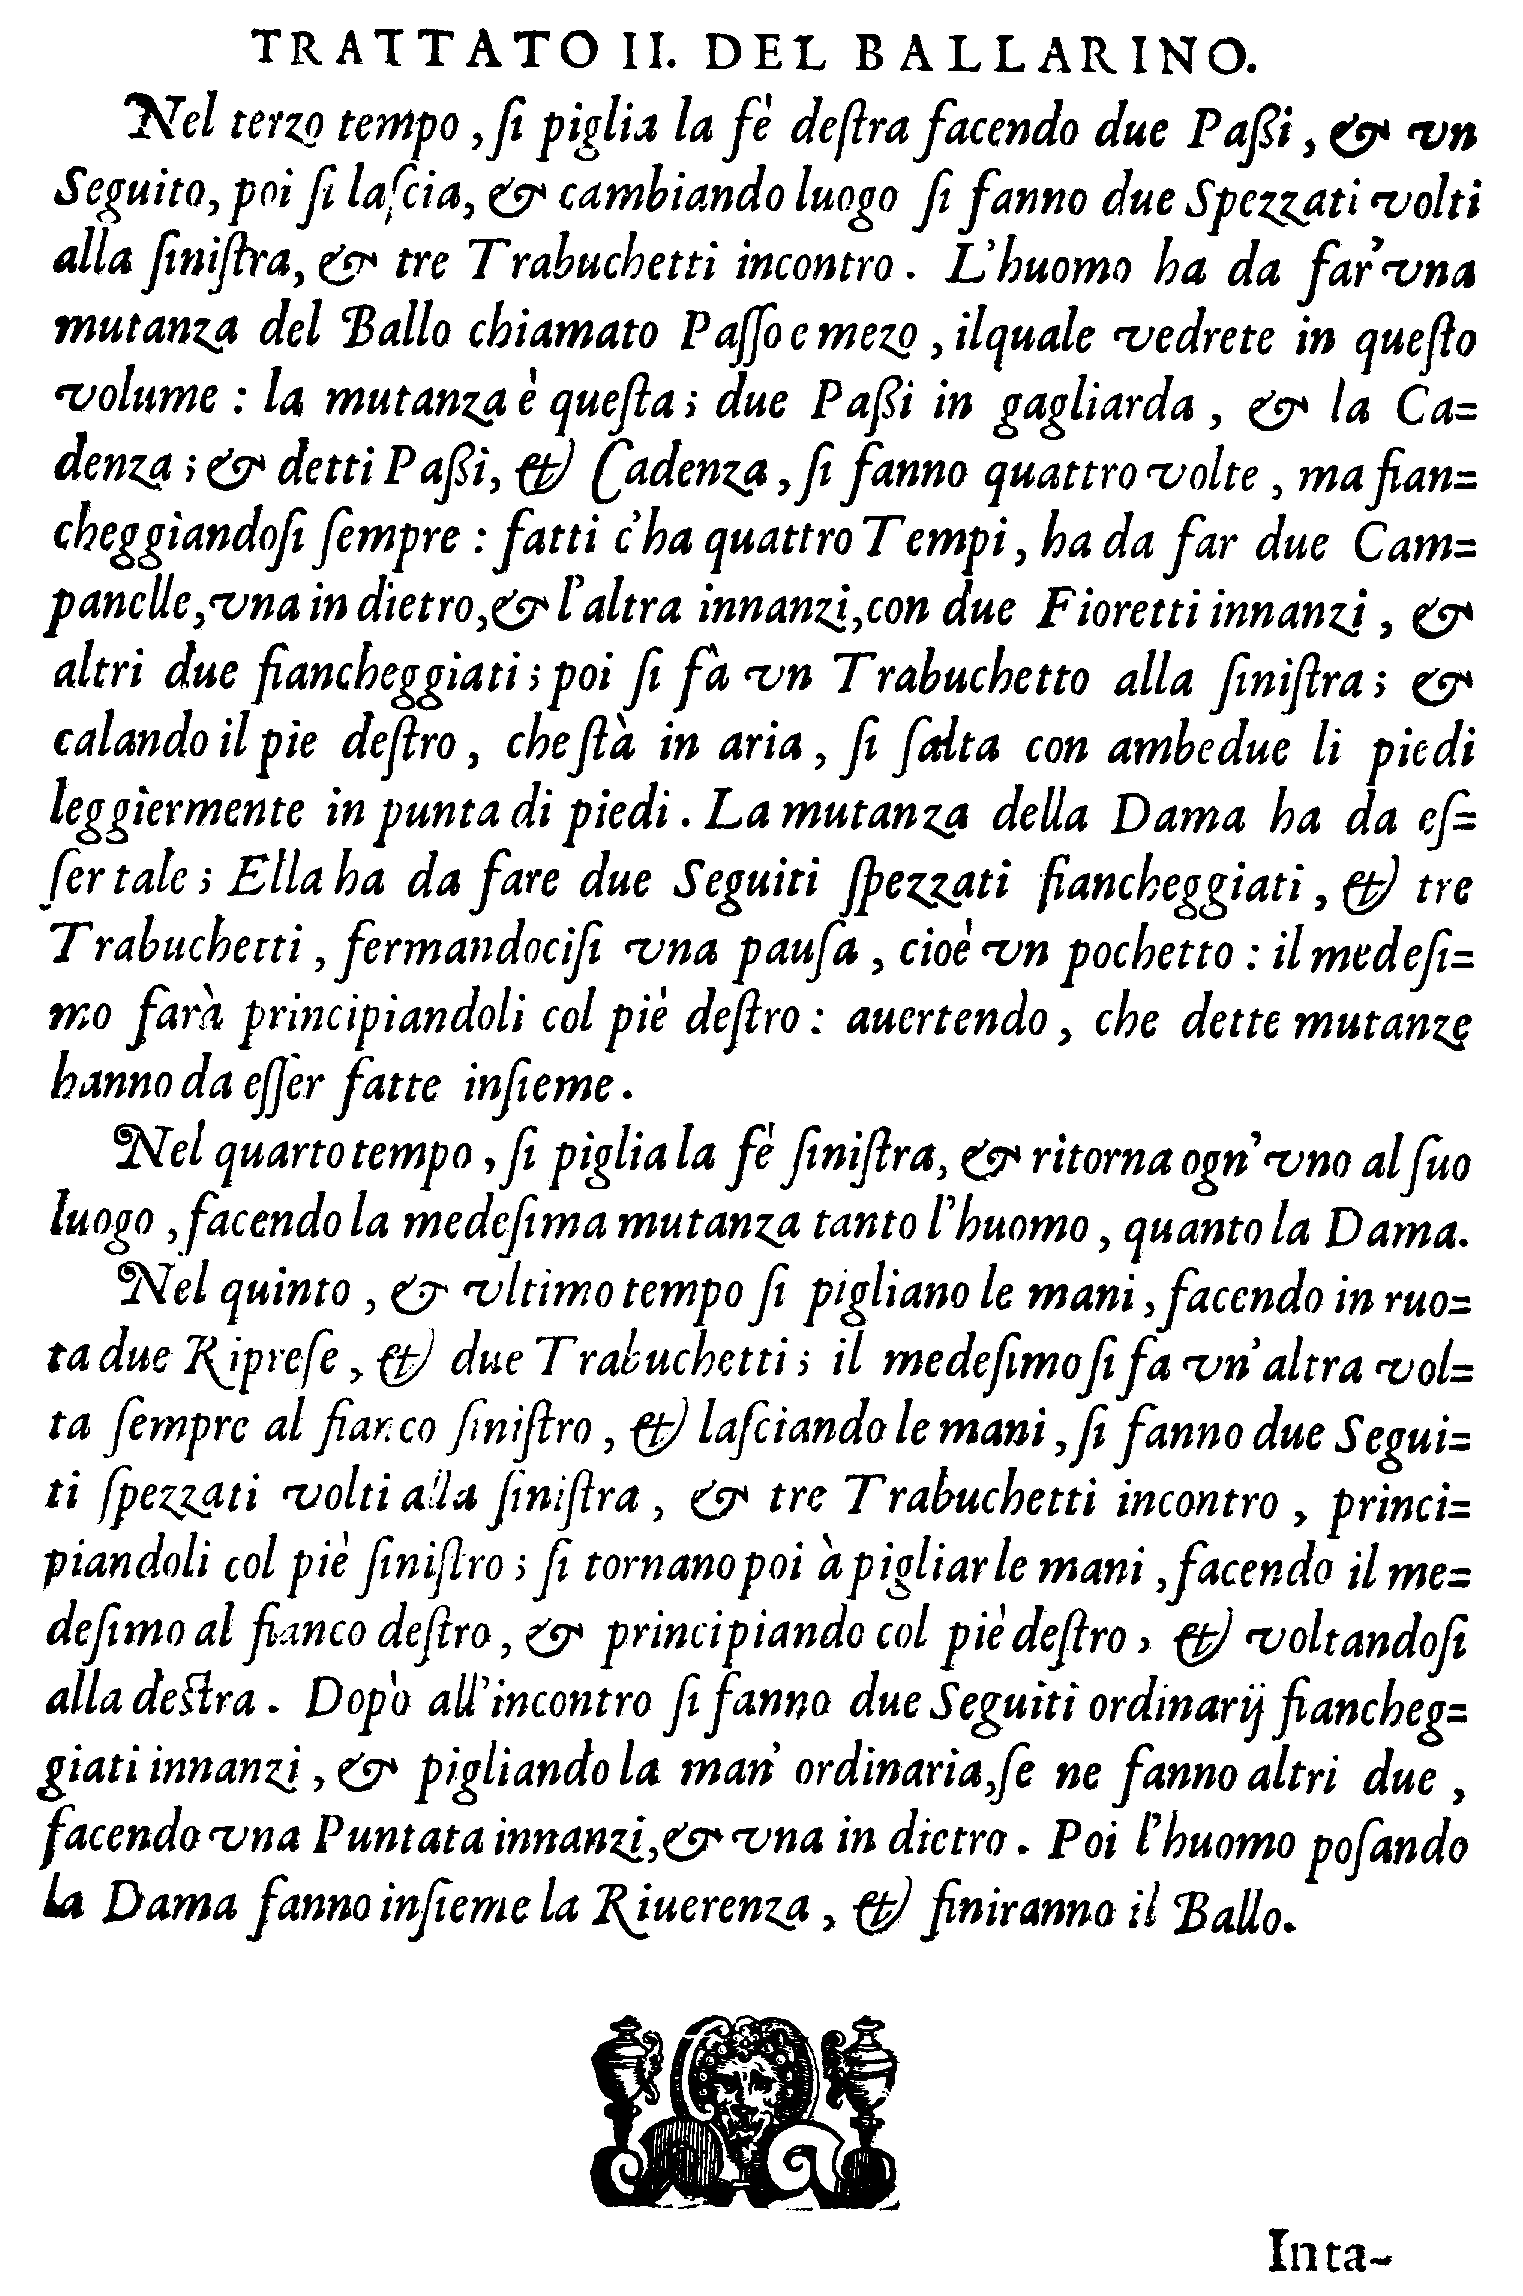 TRATTATO II. DEL BALLARINO.
Nel terzo tempo, ſi piglia la fè deſtra facendo due Paßi, & vn
Seguito, poi ſi laſcia, & cambiando luogo ſi fanno due Spezzati volti
alla ſiniſtra, & tre Trabuchetti incontro. L'huomo ha da far' vna
mutanza del Ballo chiamato Paſſo e mezo, ilquale vedrete in queſto
volume: la mutanza è queſta; due Paßi in gagliarda, & la Ca=
denza; & detti Paßi, & Cadenza, ſi fanno quattro volte, ma fian=
cheggiandoſi ſempre: fatti c'ha quattro Tempi, ha da far due Cam=
panelle, vna in dietro, & l'altra innanzi, con due Fioretti innanzi, &
altri due fiancheggiati; poi ſi fà vn Trabuchetto alla ſiniſtra; &
calando il pie deſtro, che ſtà in aria, ſi ſalta con ambedue li piedi
leggiermente in punta di piedi. La mutanza della Dama ha da eſ=
ſer tale; Ella ha da fare due Seguiti ſpezzati fiancheggiati, & tre
Trabuchetti, fermandociſi vna pauſa, cioè vn pochetto: il medeſi=
mo farà principiandoli col piè deſtro: auertendo, che dette mutanze
hanno da eſſer fatte inſieme.
Nel quarto tempo, ſi piglia la fè ſiniſtra, & ritorna ogn' vno al ſuo
luogo, facendo la medeſima mutanza tanto l'huomo, quanto la Dama.
Nel quinto, & vltimo tempo ſi pigliano le mani, facendo in ruo=
ta due Ripreſe, & due Trabuchetti; il medeſimo ſi fa vn' altra vol=
ta ſempre al fianco ſiniſtro, & laſciando le mani, ſi fanno due Segui=
ti ſpezzati volti alla ſiniſtra, & tre Trabuchetti incontro, princi=
piandoli col piè ſiniſtro; ſi tornano poi à pigliar le mani, facendo il me=
deſimo al fianco deſtro, & principiando col piè deſtro, & voltandoſi
alla deſtra. Dopò all'incontro ſi fanno due Seguiti ordinarij fiancheg=
giati innanzi, & pigliando la man' ordinaria, ſe ne fanno altri due,
facendo vna Puntata innanzi, & vna in dietro. Poi l'huomo poſando
la Dama fanno inſieme la Riuerenza, & finiranno il Ballo.
Inta-